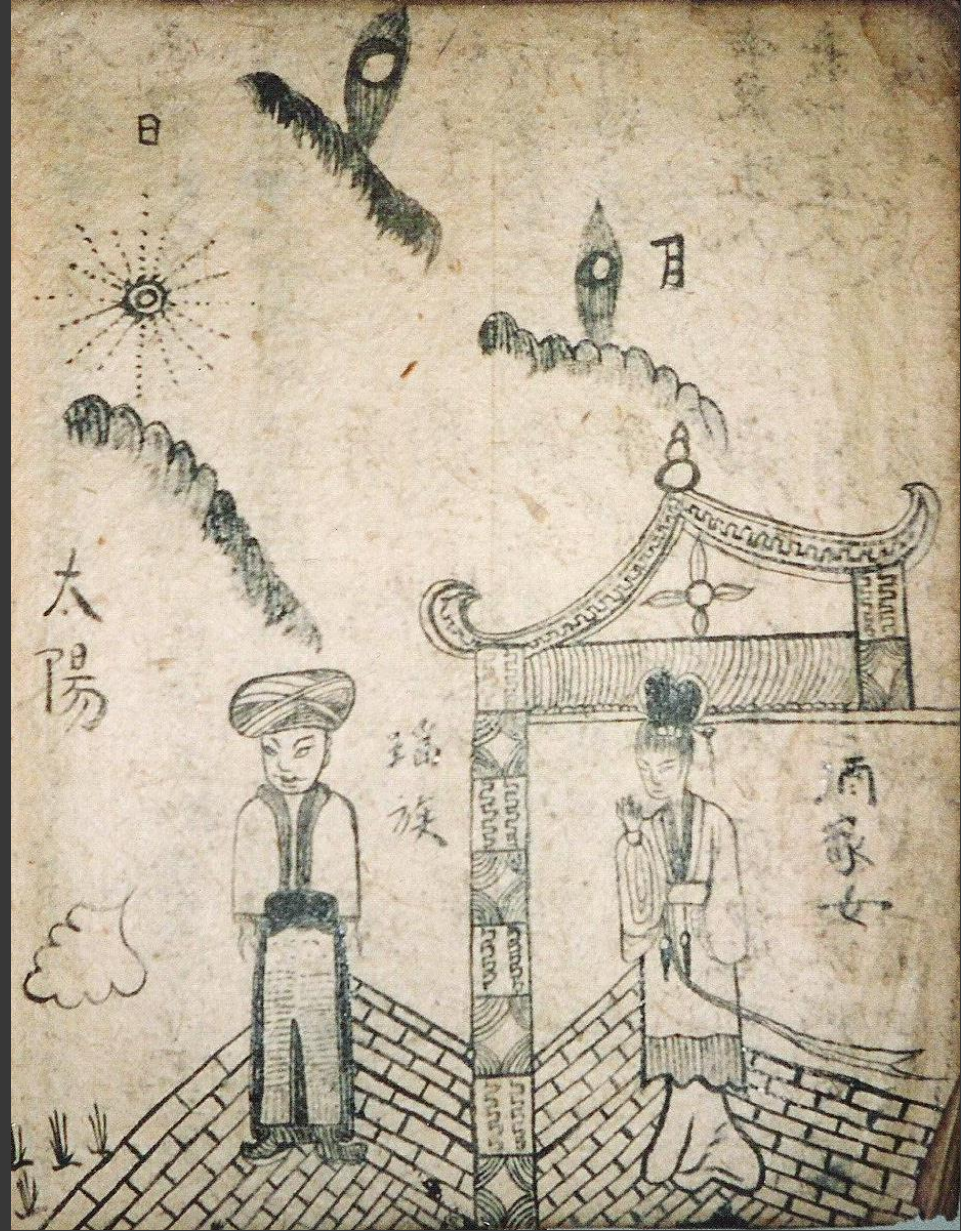 日
月
太陽
瑤族
酒家女